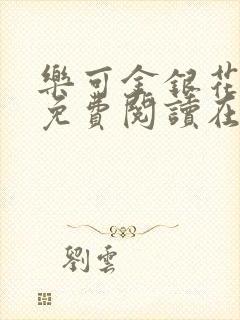 樂可金銀花
免費閱讀在
劉雲